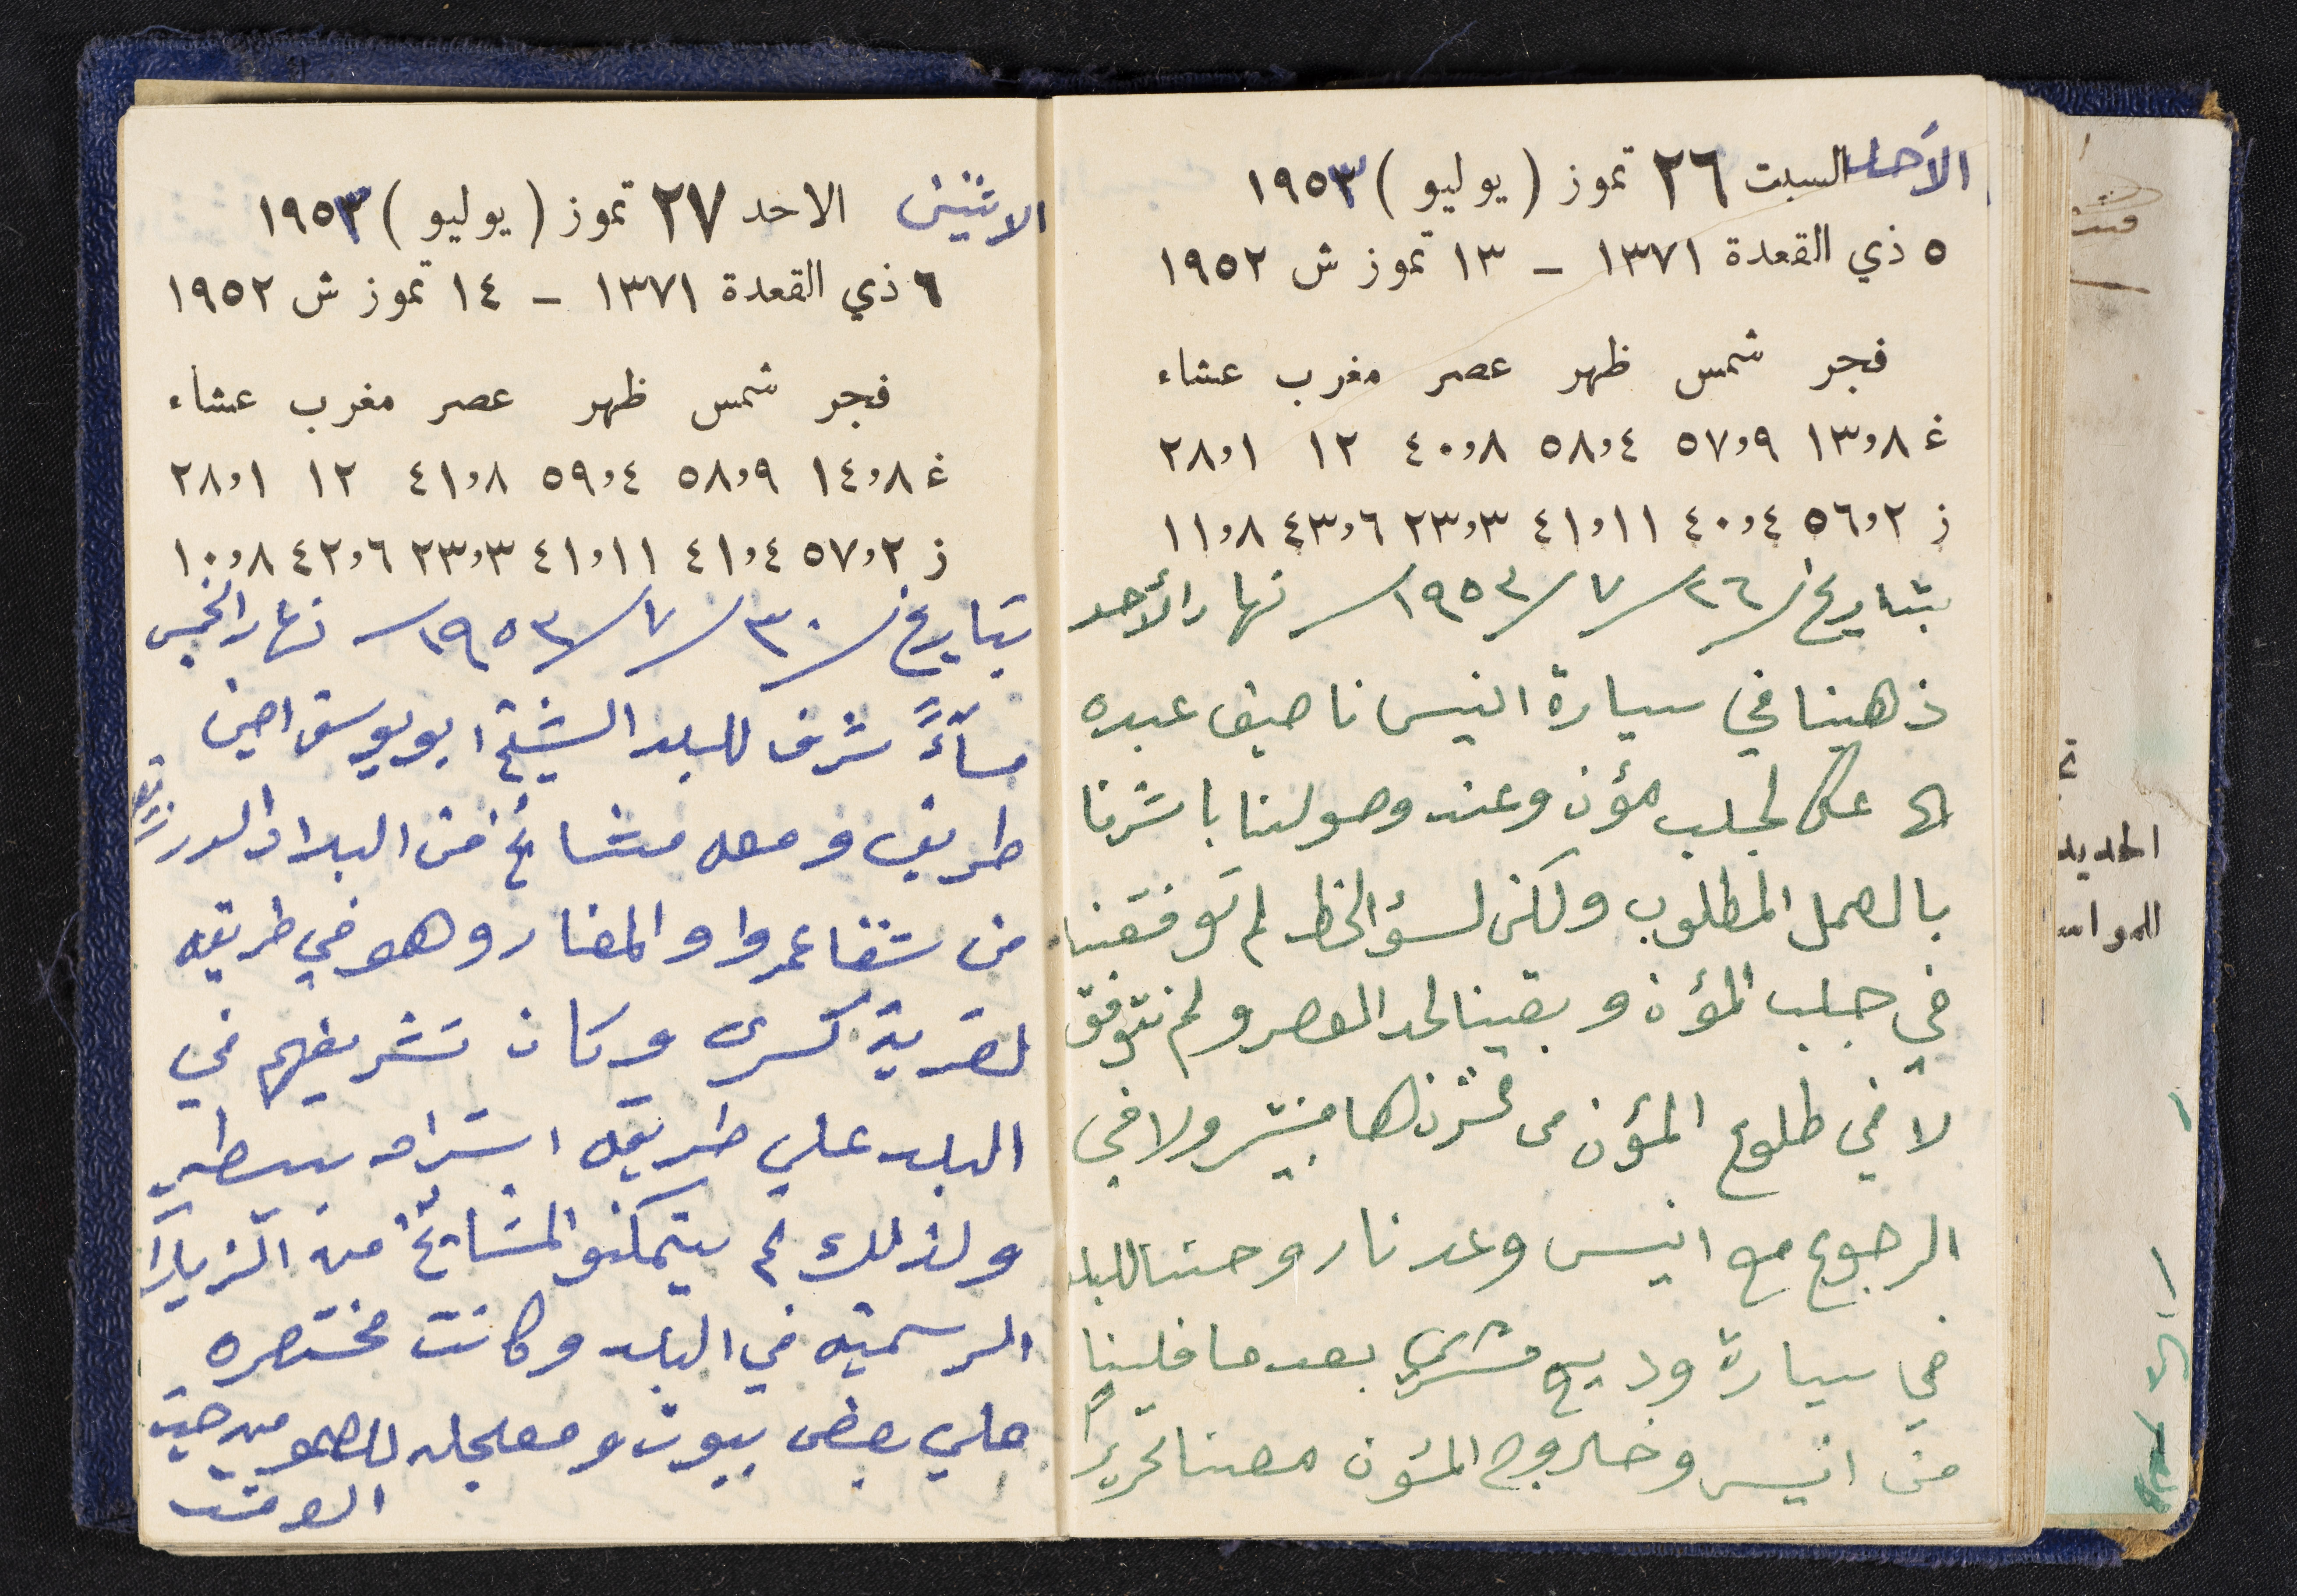 الأحد السبت ٢٦ تموز (يوليو) ١٩٥٣
٥ ذي القعدة ١٣٧١ - ١٣ تموز ش ١٩٥٢
فجر شمس ظهر عصر مغرب عشاء
غ ١٣٫٨ ٥٧٫٩ ٥٨٫٤ ٤٠٫٨ ١٢ ٢٨٫١
ز ٥٦٫٢ ٤٠٫٤ ٤١٫١١ ٢٣٫٣ ٤٣٫٦ ١١٫٨
بتاريخ / ٢٦ / ٧ / ١٩٥٣ / نهار الأحد
ذهبنا في سيارة انيس ناصيف عبده
الى عكا لجلب مؤن وعند وصولنا باشرنا
بالعمل المطلوب ولكن لسؤ الحظ لم توفقنا
في جلب المؤن وبقينا لحد العصر ولم نتوفق
لا في طلوع المؤن من ولا في
الرجوع مع انيس وعدنا روحنا للبلد
في سيارة وديع بعد ما فلينا
من انيس وخاروج المئون معنا تحريراً
الاثنين الاحد ٢٧ تموز (يوليو) ١٩٥٣
٦ ذي القعدة ١٣٧١ - ١٤ تموز ش ١٩٥٢
فجر شمس ظهر عصر مغرب عشاء
غ ١٤٫٨ ٥٨٫٩ ٥٩٫٤ ٤١٫٨ ١٢ ٢٨٫١
ز ٥٧٫٢ ٤١٫٤ ٤١٫١١ ٢٣٫٣ ٤٢٫٦ ١٠٫٨
بتاريخ / ٣٠ / ٧ / ١٩٥٣ / نهار الخميس
مساءً شرف للبلد الشيخ ابو يوسف امين
طريف ومعه مشائخ من البلاد الدرزية
من شفاعمرو والمغار وهو في طريقه
لقرية كسرى وكان تشريفهم في
البلد على طريقه
ولذلك لم يتمكنو المشائخ من الزيارا
الرسميه في البلد وكانت مختصره
على بعض بيوت ومعجله من حيث
الوقت
الحديد